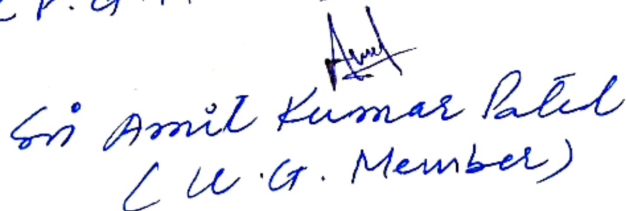 Amit
Sri Amit Kumar Patel
(U.G. Member)